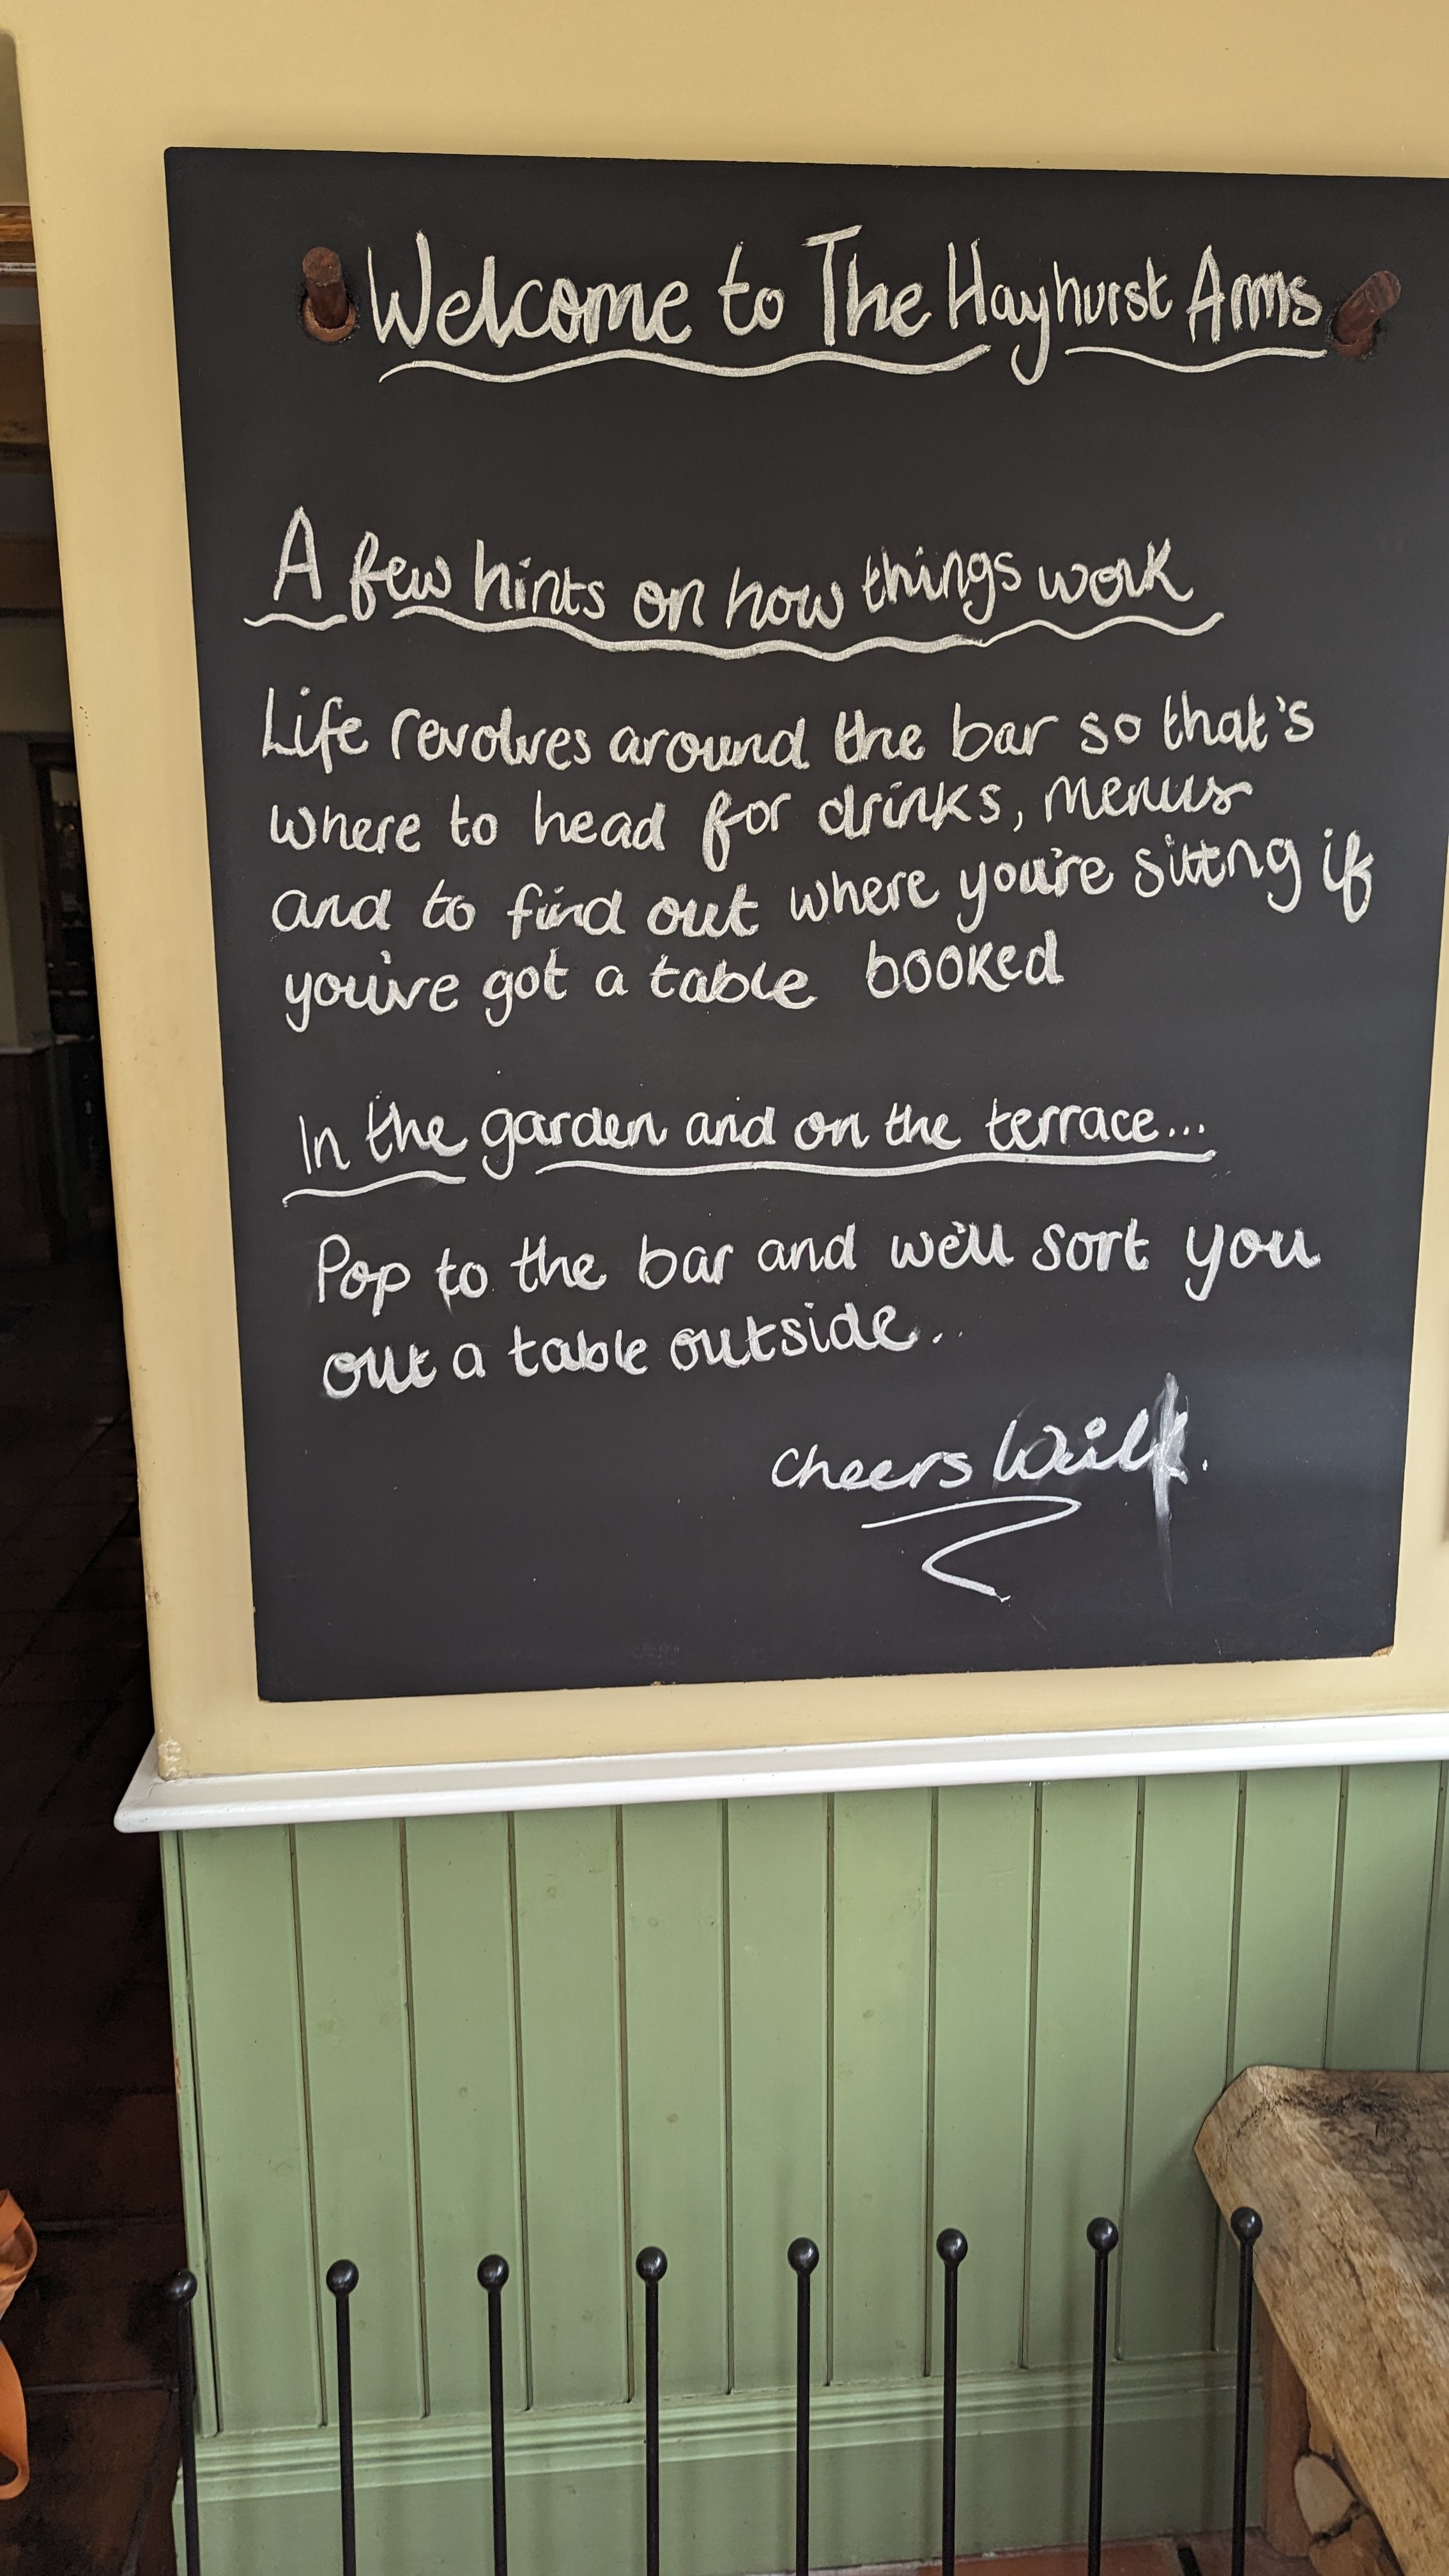 Welcome to The Hayhurst Arms
A few hints on how things work
Life revolves around the bar so that's
where to head for drinks, menus
and to find out where you're sitting if
you've got a table booked
In the garden and on the terrace...
Pop to the bar and we'll sort you
out a table outside...
Cheers